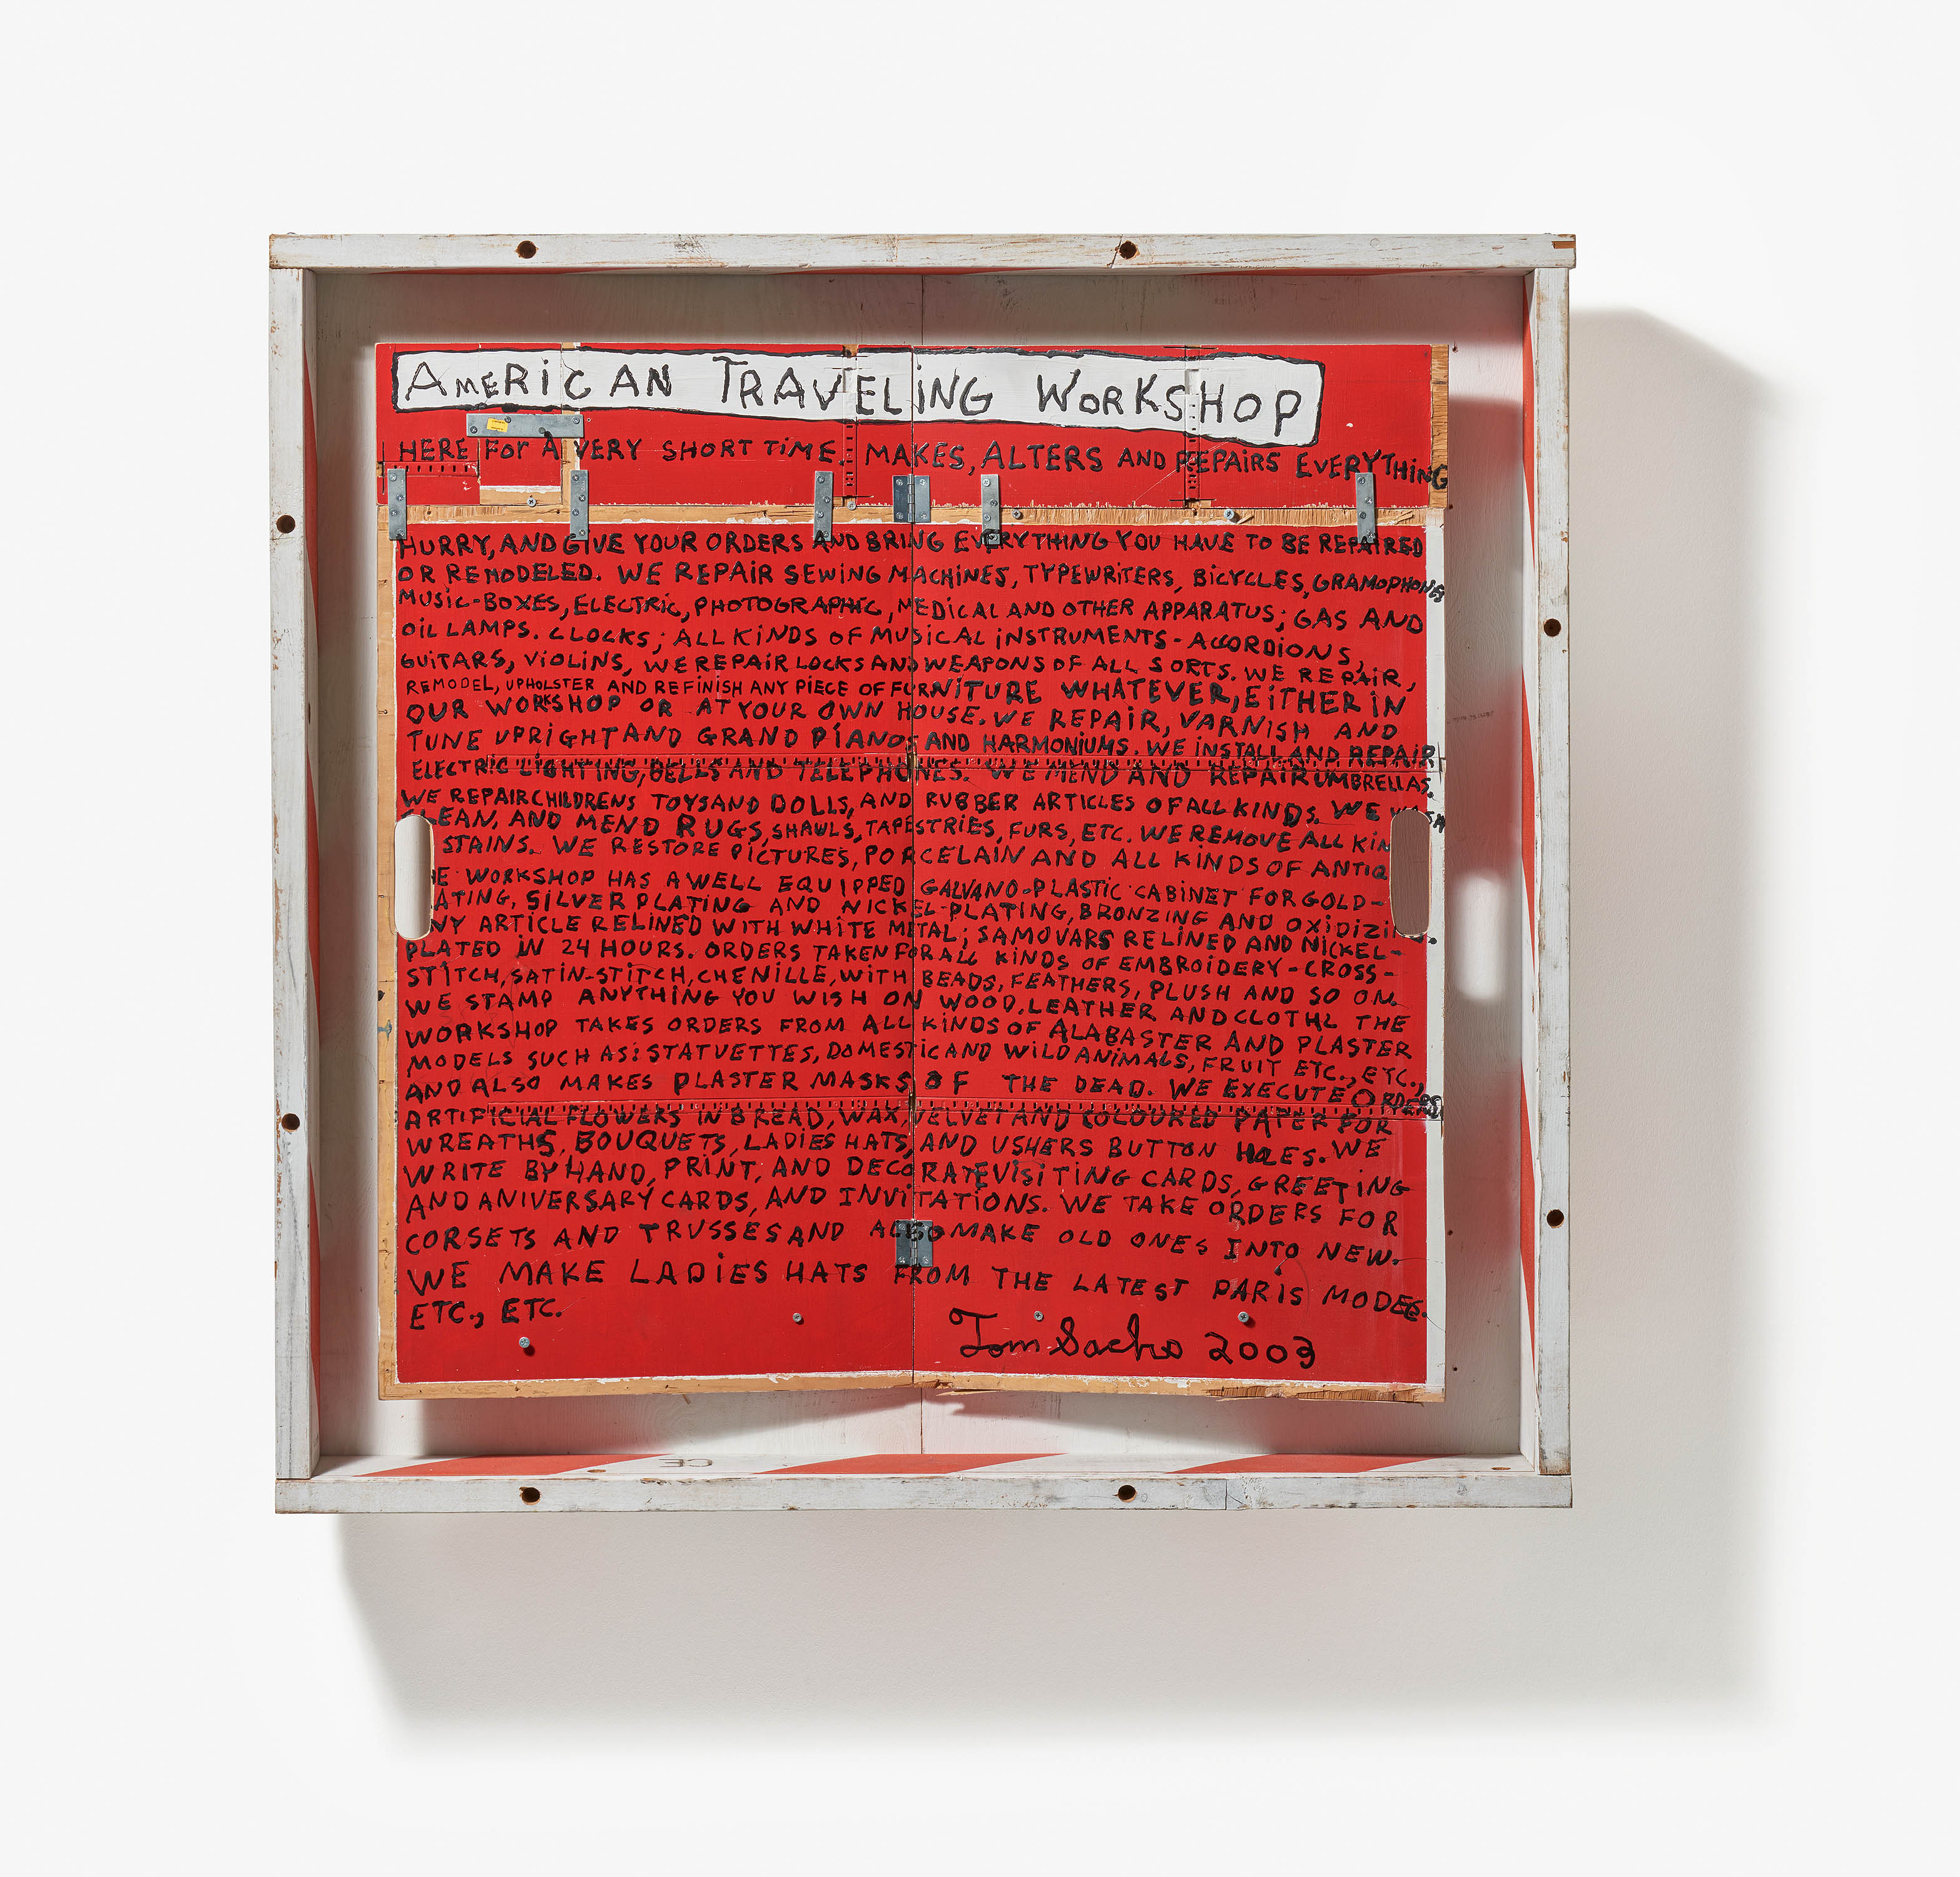 AMERICAN TRAVELING WORKSHOP
HERE FOR A VERY SHORT TIME. MAKES, ALTERS AND REPAIRS EVERYTHING
HURRY, AND GIVE YOUR ORDERS AND BRING EVERYTHING YOU HAVE TO BE REPAIRED
OR REMODELED. WE REPAIR SEWING MACHINES, TYPEWRITERS, BICYCLES, GRAMOPHONES
MUSIC-BOXES, ELECTRIC, PHOTOGRAPHIC, MEDICAL AND OTHER APPARATUS; GAS AND
OIL LAMPS. CLOCKS; ALL KINDS OF MUSICAL INSTRUMENTS - ACCORDIONS,
GUITARS, VIOLINS, WE REPAIR LOCKS AND WEAPONS OF ALL SORTS. WE REPAIR,
REMODEL, UPHOLSTER AND REFINISH ANY PIECE OF FURNITURE WHATEVER, EITHER IN
OUR WORKSHOP OR AT YOUR OWN HOUSE. WE REPAIR, VARNISH AND
TUNE UPRIGHT AND GRAND PIANOS AND HARMONIUMS. WE INSTALL AND REPAIR
ELECTRIC LIGHTING, BELLS AND TELEPHONES. WE MEND AND REPAIR UMBRELLAS.
WE REPAIR CHILDRENS TOYS AND DOLLS, AND RUBBER ARTICLES OF ALL KINDS. WE
CLEAN, AND MEND RUGS, SHAWLS, TAPESTRIES, FURS, ETC. WE REMOVE ALL KIN
STAINS. WE RESTORE PICTURES, PORCELAIN AND ALL KINDS OF ANTIQ
HE WORKSHOP HAS A WELL EQUIPPED GALVANO-PLASTIC CABINET FOR GOLD-
ATING, SILVER PLATING AND NICKEL-PLATING, BRONZING AND OXIDIZI
NY ARTICLE RELINED WITH WHITE METAL; SAMOVARS RELINED AND NICKEL-
PLATED IN 24 HOURS. ORDERS TAKEN FOR ALL KINDS OF EMBROIDERY - CROSS-
STITCH, SATIN-STITCH, CHENILLE, WITH BEADS, FEATHERS, PLUSH AND SO ON.
WE STAMP ANYTHING YOU WISH ON WOOD, LEATHER AND CLOTH. THE
WORKSHOP TAKES ORDERS FROM ALL KINDS OF ALABASTER AND PLASTER
MODELS SUCH AS: STATUETTES, DOMESTIC AND WILD ANIMALS, FRUIT ETC., ETC.,
AND ALSO MAKES PLASTER MASKS OF THE DEAD. WE EXECUTE ORDERS
ARTIFICIAL FLOWERS IN BREAD, WAX, VELVET AND COLOURED PAPER FOR
WREATHS, BOUQUETS, LADIES HATS, AND USHERS BUTTON HOLES. WE
WRITE BY HAND, PRINT, AND DECORATE VISITING CARDS, GREETING
AND ANIVERSARY CARDS, AND INVITATIONS. WE TAKE ORDERS FOR
CORSETS AND TRUSSES AND ALSO MAKE OLD ONES INTO NEW.
WE MAKE LADIES HATS FROM THE LATEST PARIS MODES.
ETC., ETC.
Tom Sachs 2003